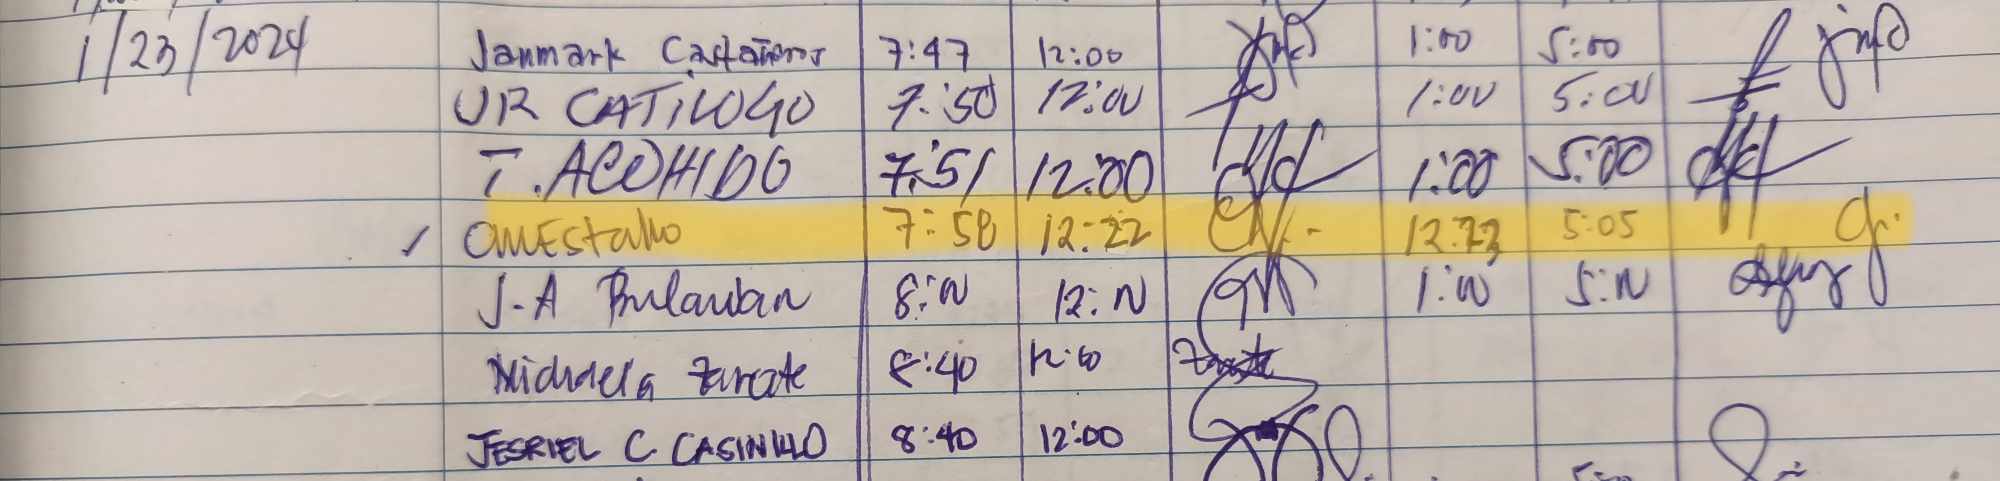 1/23/2024 Janmark Castañeros 7:47 12:00 1:00 5:00
JR CATILOGO 7:50 12:00 1:00 5:00
T. ACOHIDO 7:51 12:00 1:00 5:00
7:58 12:22 12:23 5:05
J-A Bulawan 8:00 12:00 1:00 5:00
Michaela Zarate 8:40 12:00 Zarate
JESRIEL C. CASINILLO 8:40 12:00